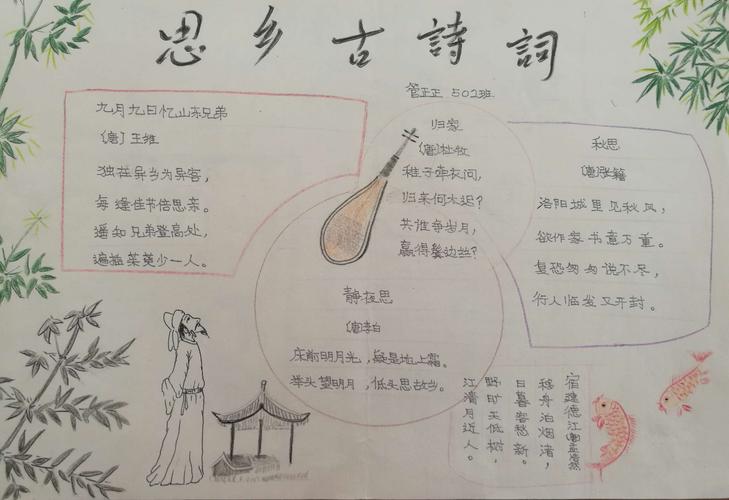 思乡古詩詞
管正正 502班
九月九日忆山东兄弟
(唐)王维
独在异乡为异客,
每逢佳节倍思亲。
遥知兄弟登高处,
遍插茱萸少一人。
归家
(唐)杜牧
稚子牵衣问,
归来何太迟?
共谁争岁月,
赢得鬓边丝?
秋思
(唐)张籍
洛阳城里见秋风,
欲作家书意万重。
复恐匆匆说不尽,
行人临发又开封。
静夜思
(唐)李白
床前明月光,疑是地上霜。
举头望明月,低头思故乡。
宿建德江(唐)孟浩然
移舟泊烟渚,
日暮客愁新。
野旷天低树,
江清月近人。